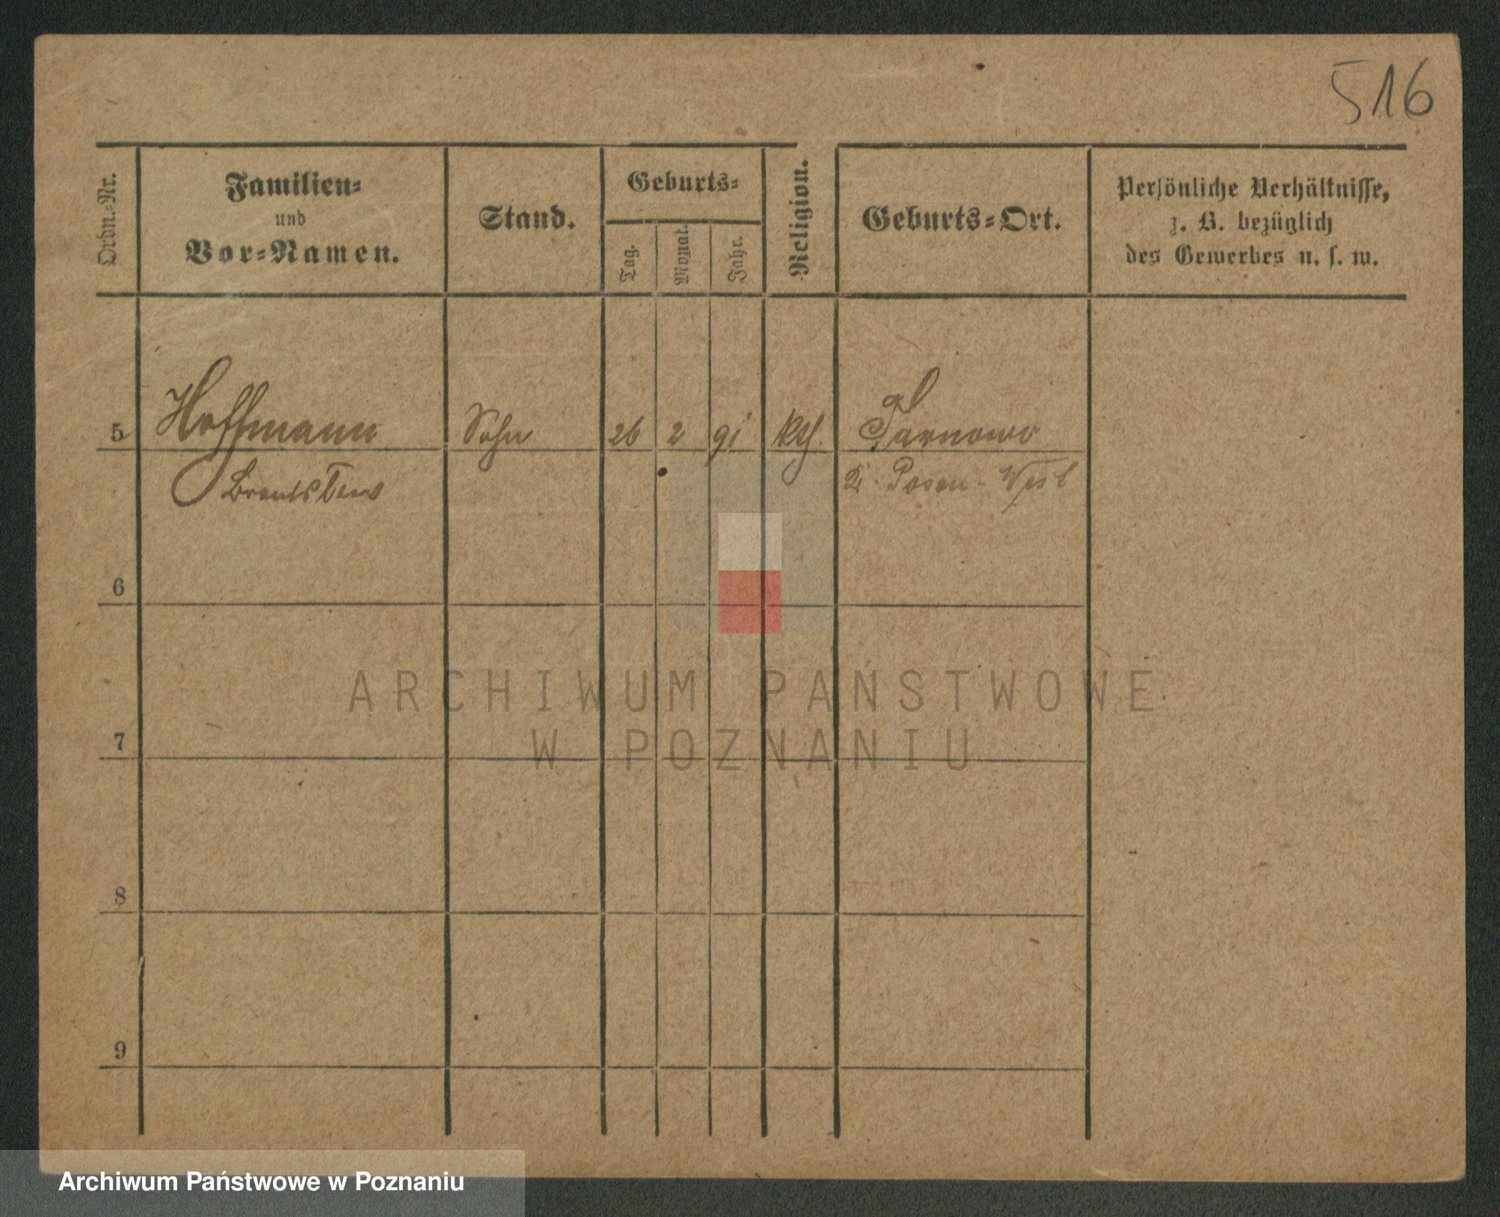 516
Ordn.-Nr.
Familien-
und
Vor-Namen.
Stand.
Geburts-
Tag.
Monat.
Jahr.
Religion.
Geburts-Ort.
Persönliche Verhältnisse,
z. B. bezüglich
des Gewerbes u. s. w.
5 Hoffmann Sohn 26 2 91 kth. Tarnowo
Posen-West
6
7
8
9
ARCHIWUM PAŃSTWOWE
W POZNANIU
Archiwum Państwowe w Poznaniu